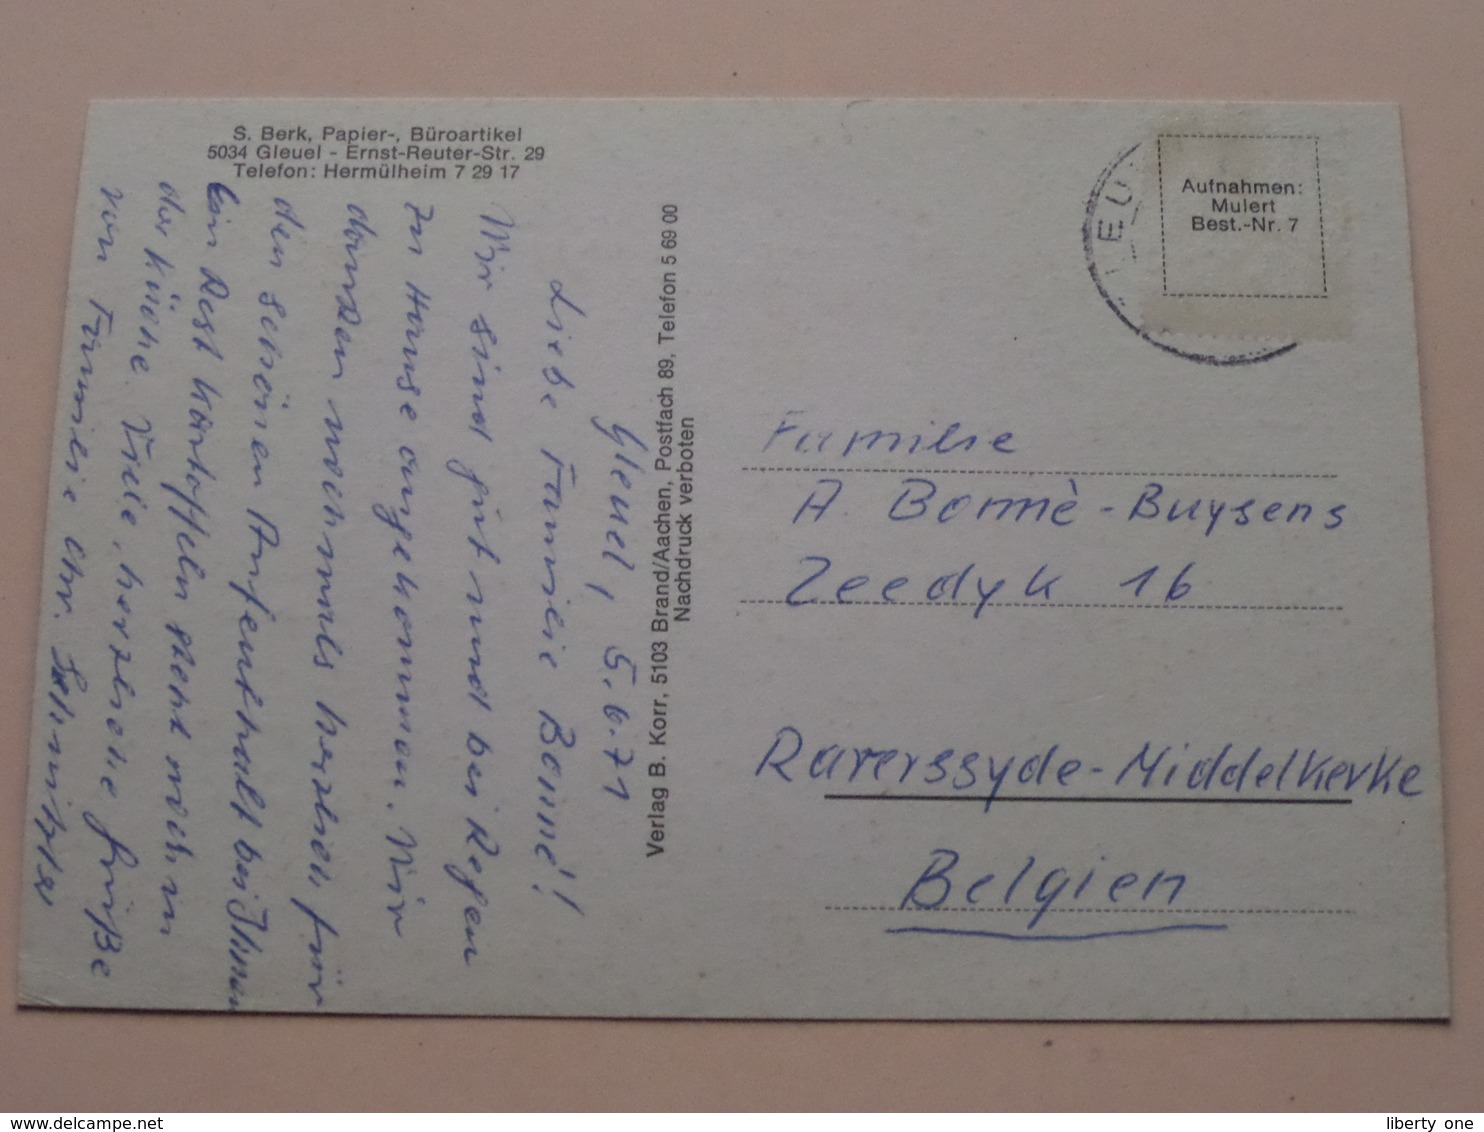 S. Berk, Papier-, Büroartikel
5034 Gleuel - Ernst-Reuter-Str. 29
Telefon: Hermülheim 7 29 17
Gleuel, 5.6.71
Liebe Familie Bonné!
Wir sind gut und bei Regen
zu Hause angekommen. Wir
danken nochmals herzlich für
den schönen Aufenthalt bei Ihnen
Ein Rest Kartoffeln steht noch in
der Küche. Viele, herzliche Grüße
von Familie Chr. Schmitz
Verlag B. Korr, 5103 Brand/Aachen, Postfach 89, Telefon 5 69 00
Nachdruck verboten
LEU
Aufnahmen:
Mulert
Best.-Nr. 7
Familie
A. Bonnè - Buysens
Zeedyk 16
Raverssyde - Middelkerke
Belgien
www.delcampe.net
liberty one